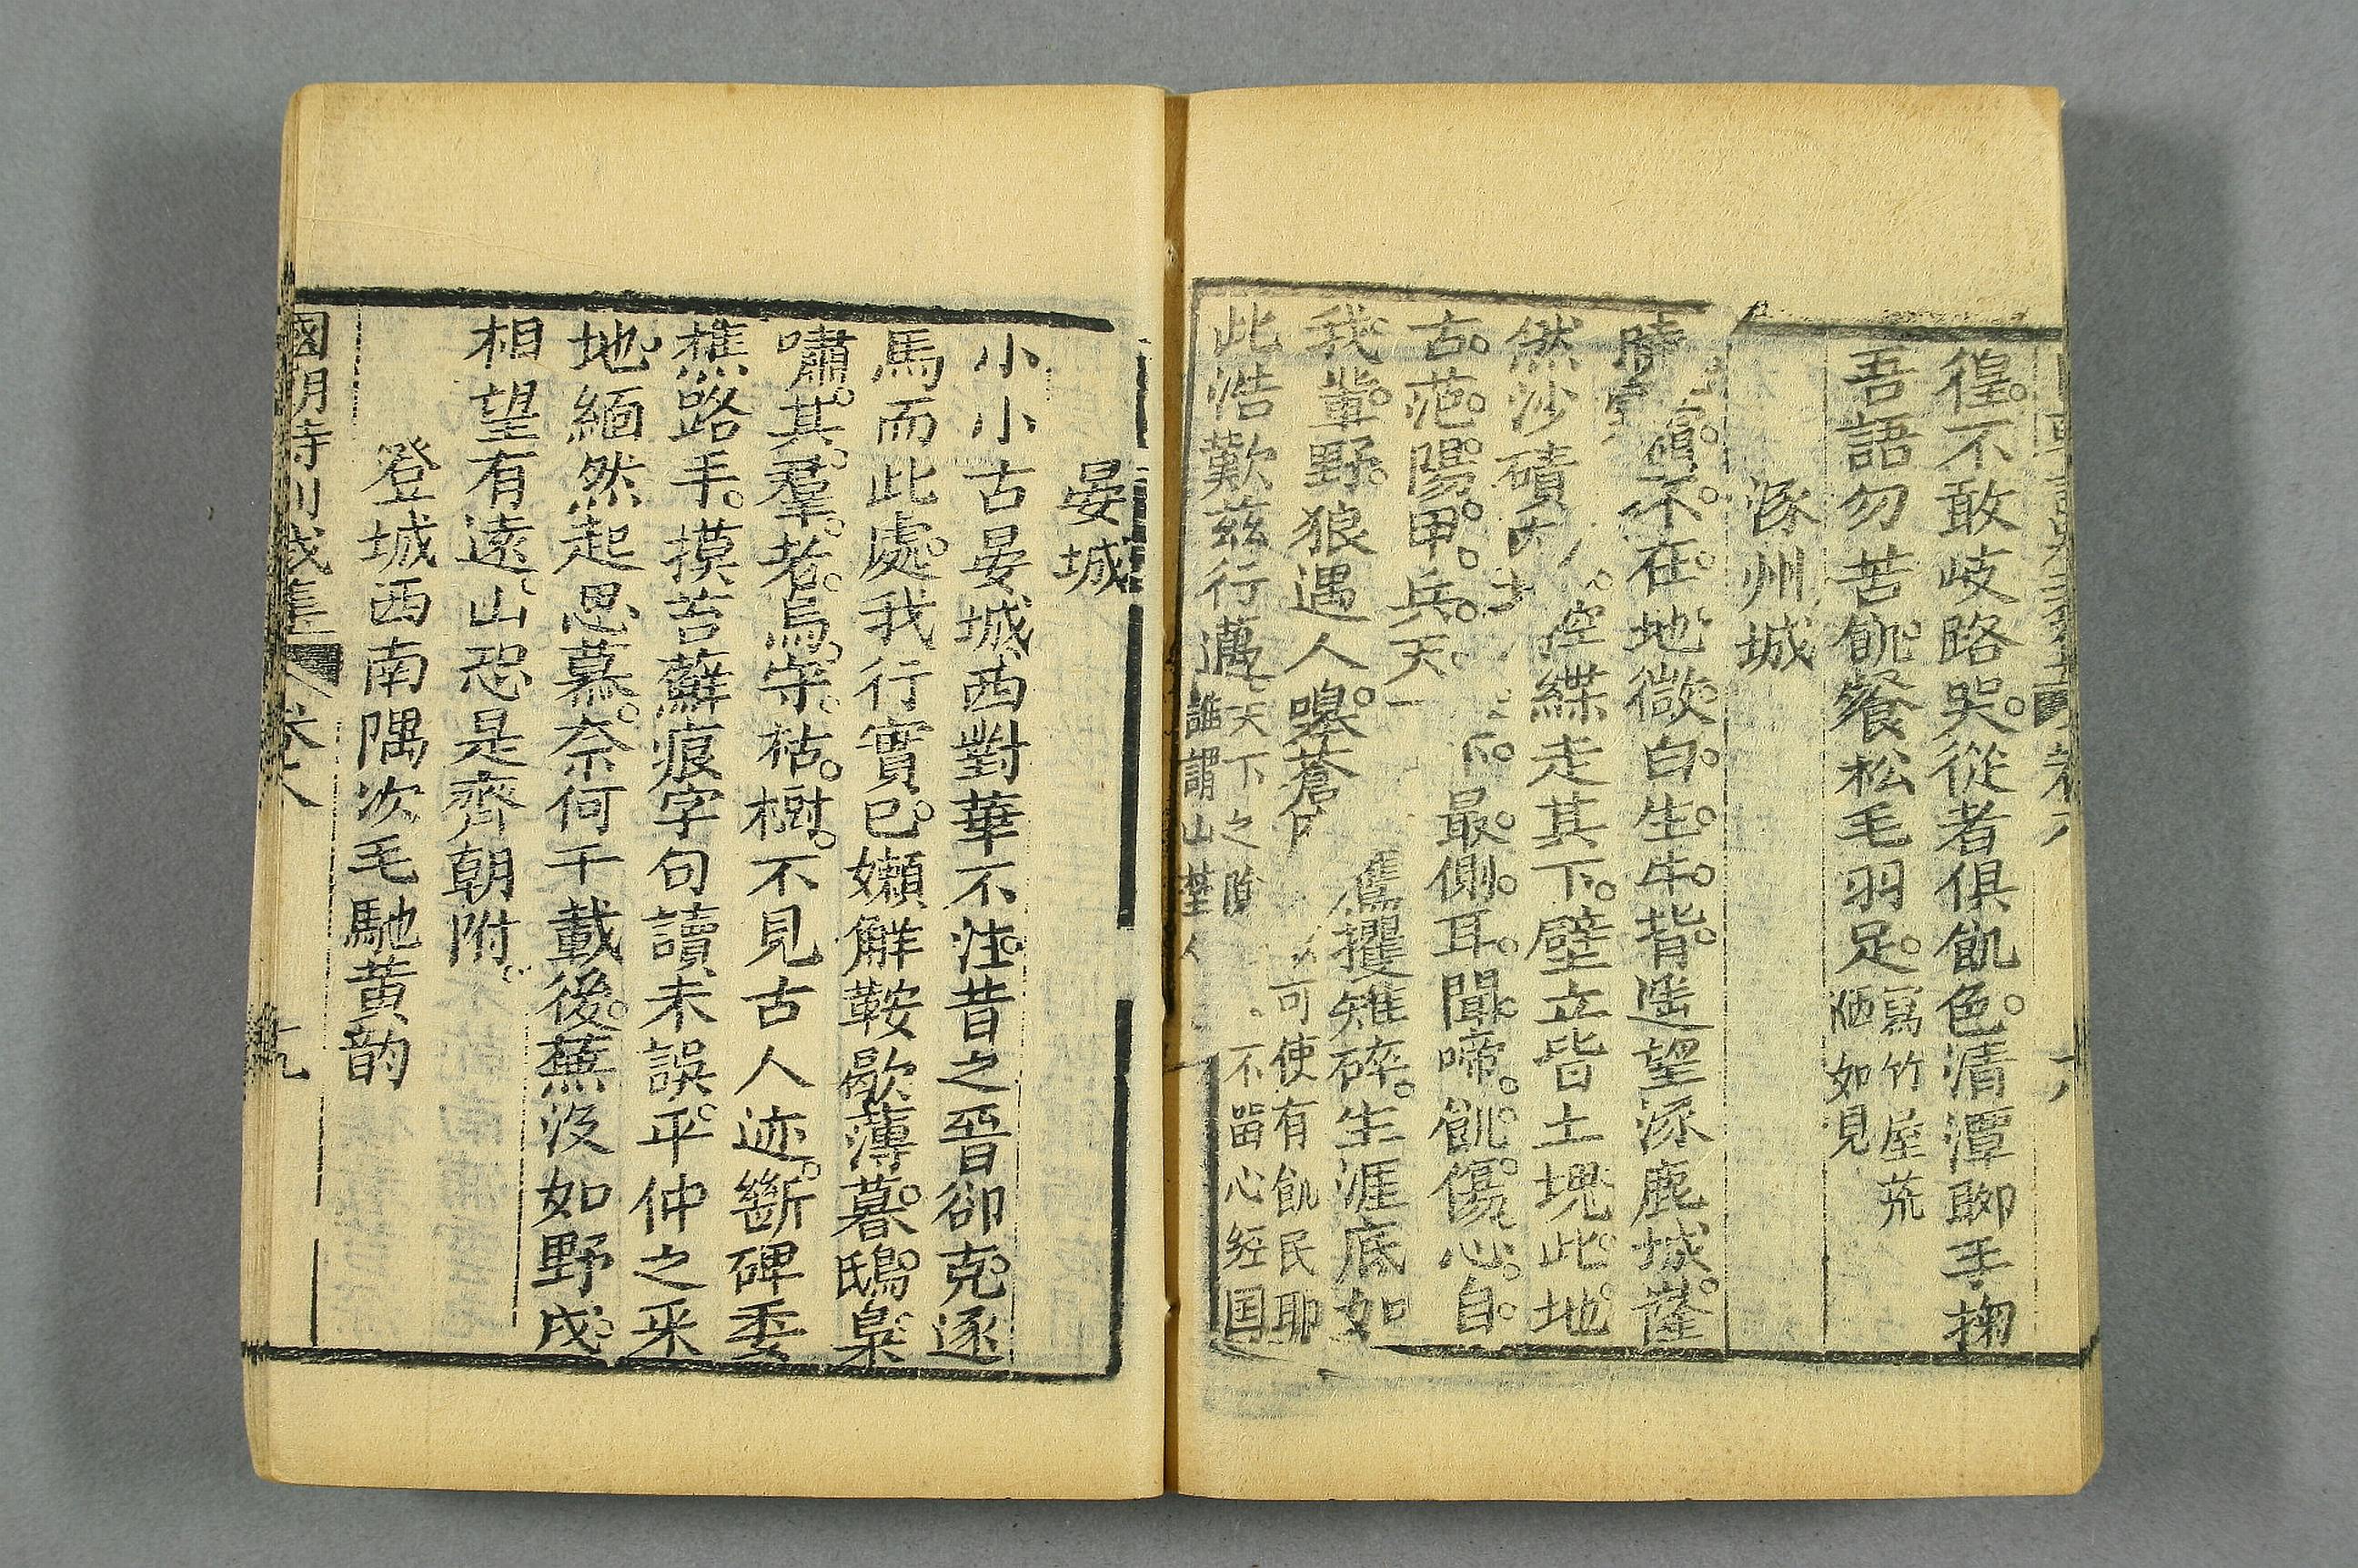 徨不敢岐路哭從者俱飢色清潭聊手掬
吾語勿苦飢餐松毛羽足寫竹屋荒
陋如見
涿州城
不在地微白生牛背遥望涿鹿城嶐
然沙磧大空緤走其下壁立皆土塊此地
古范陽甲兵天下最側耳聞啼飢傷心自
我輩野狼遇人嗥蒼鷹攫雉碎生涯底如
此浩歎兹行邁
天下之
可使有飢民耶
誰謂山埜人
不畱心經国
晏城
小小古晏城西對華不注昔之晉卻克逐
馬而此處我行實已嬾解鞍歇薄暮鴟梟
嘯其羣老烏守枯樹不見古人迹斷碑委
樵路手摸苔蘚痕字句讀未誤平仲之采
地緬然起思慕奈何千載後蕪沒如野戍
相望有遠山恐是齊朝附
登城西南隅次毛馳黃韵
國朝詩別裁集
卷八